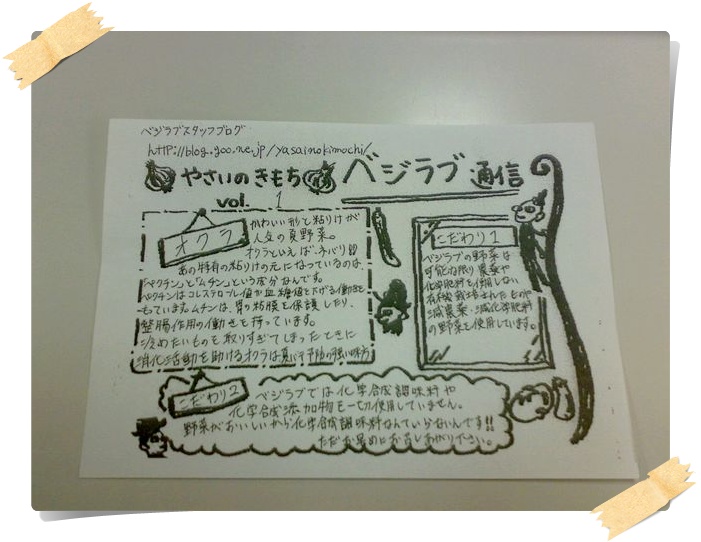 ベジラブスタッフブログ
http://blog.goo.ne.jp/yasainokimochi/
やさいのきもち ベジラブ通信
vol. 1
オクラ
かわいい形と粘りけが
人気の夏野菜。
オクラといえば、ネバリ
あの特有の粘りけの元になっているのは、
「ペクチン」と「ムチン」という成分なんです。
ペクチンはコレステロールや血糖値を下げる働きを
もっています。ムチンは、胃の粘膜を保護したり、
整腸作用の働きを持っています。
冷めたいものを取りすぎてしまったときに
消化活動を助けるオクラは夏バテ予防の強い味方
こだわり1
ベジラブの野菜は
可能な限り農薬や
化学肥料を使用しない
有機栽培されたものや
減農薬・減化学肥料
の野菜を使用しています。
こだわり2
ベジラブでは化学合成調味料や
化学合成添加物を一切使用していません。
野菜がおいしいから化学合成調味料なんていらないんです!!
ただお早めにお召しあがり下さい。